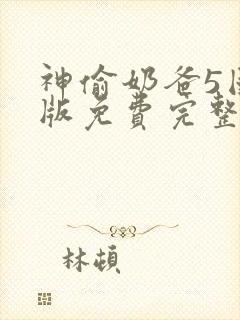 神偷奶爸5国
版免费完整
林頓